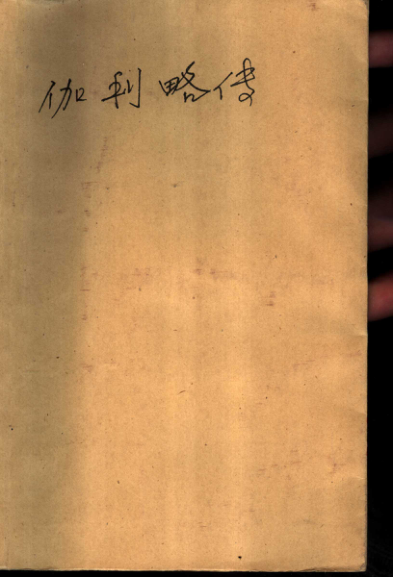 伽利略传